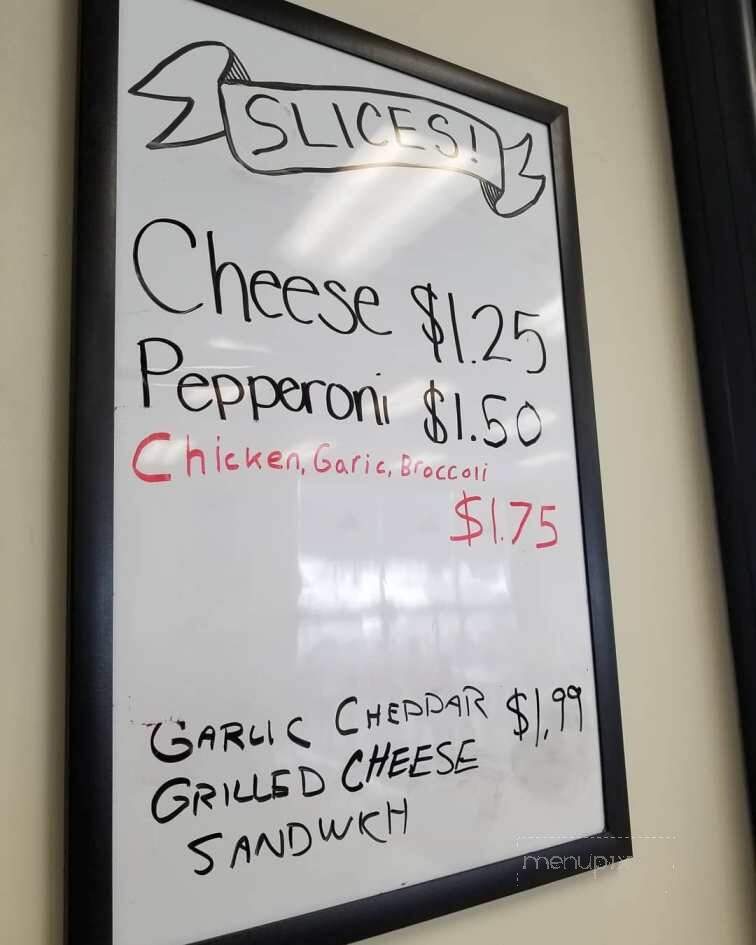 SLICES!
Cheese $1.25
Pepperoni $1.50
Chicken, Garic, Broccoli
$1.75
GARLIC CHEDDAR $1.99
GRILLED CHEESE
SANDWICH
menupix